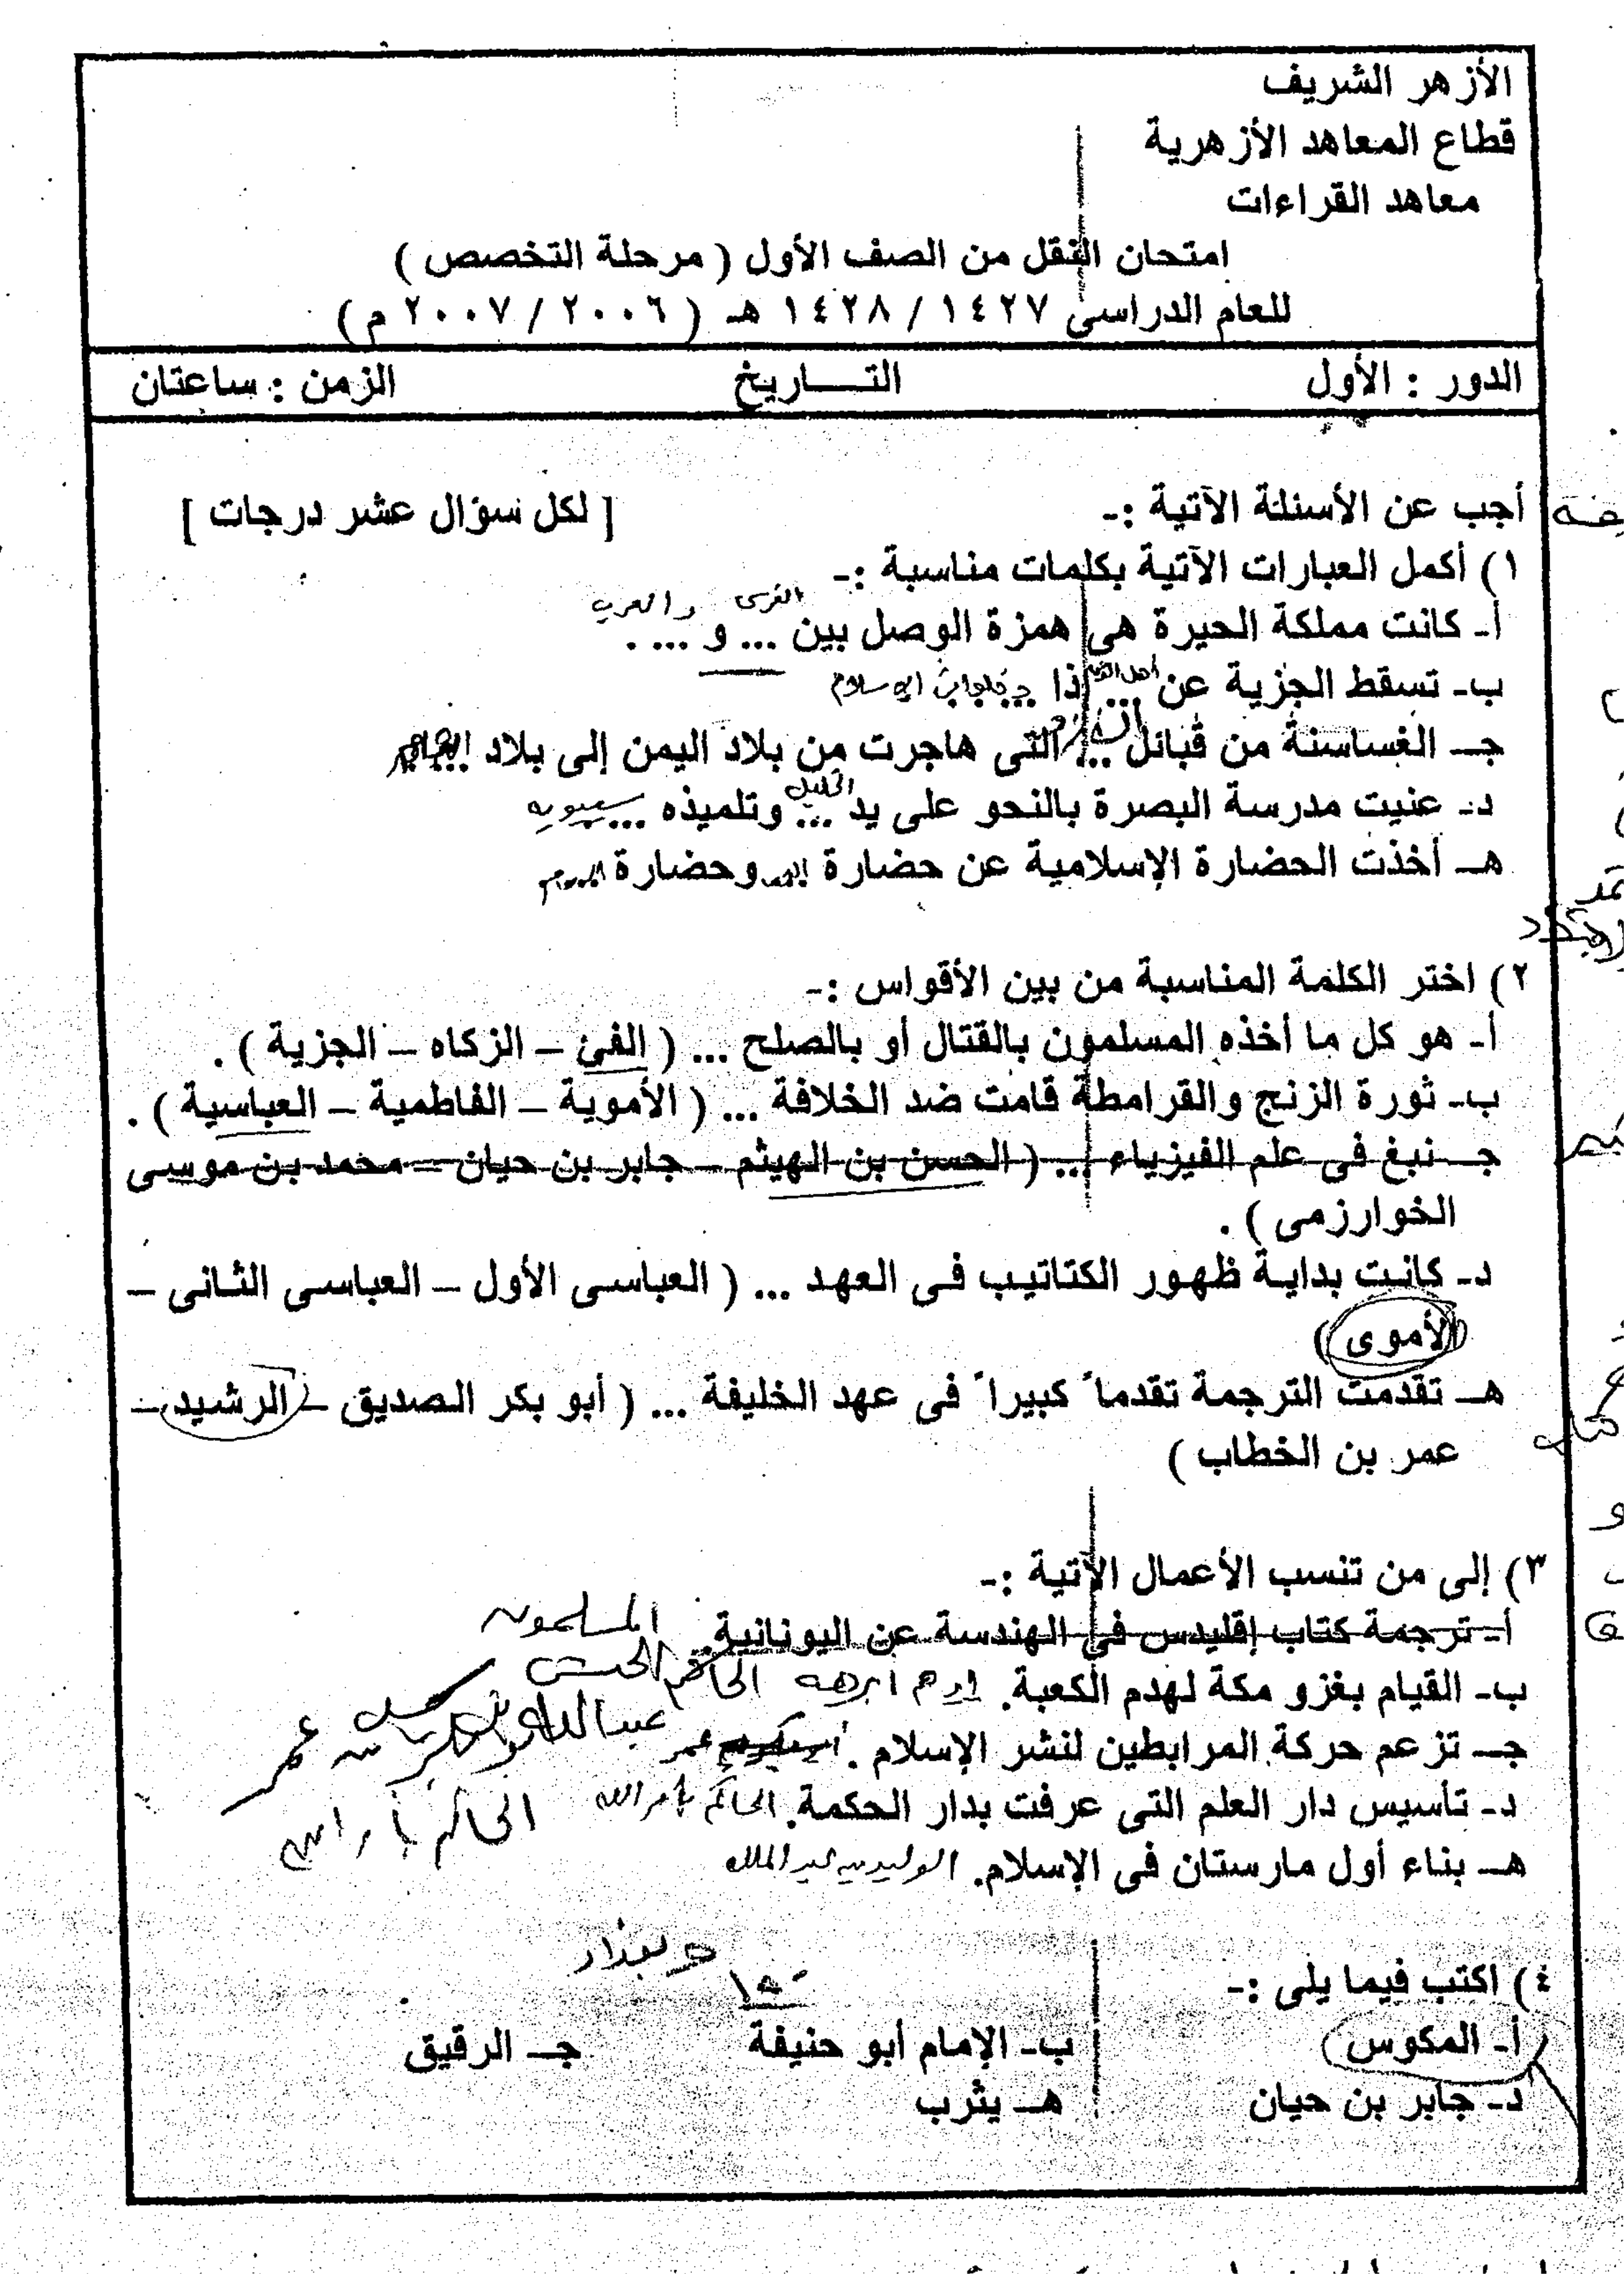 الأزهر الشريف
قطاع المعاهد الأزهرية
معاهد القراءات
امتحان النقل من الصف الأول ( مرحلة التخصص )
للعام الدراسى ١٤٢٧ / ١٤٢٨ هـ ( ٢٠٠٦ / ٢٠٠٧ م )
الدور : الأول التـــــاريخ الزمن : ساعتان
أجب عن الأسئلة الآتية :- [ لكل سؤال عشر درجات ]
١) أكمل العبارات الآتية بكلمات مناسبة :-
الفرس والعرب
أ- كانت مملكة الحيرة هى همزة الوصل بين ... و ... .
ب- تسقط الجزية عن ... إذا ... الاسلام
جـ- الغساسنة من قبائل ... التى هاجرت من بلاد اليمن إلى بلاد ...
د- عنيت مدرسة البصرة بالنحو على يد ... الخليل وتلميذه ... سيبويه
هـ- أخذت الحضارة الإسلامية عن حضارة ... وحضارة ...
٢) اختر الكلمة المناسبة من بين الأقواس :-
أ- هو كل ما أخذه المسلمون بالقتال أو بالصلح ... ( الفئ – الزكاه – الجزية ) .
ب- ثورة الزنج والقرامطة قامت ضد الخلافة ... ( الأموية – الفاطمية – العباسية ) .
جـ- نبغ فى علم الفيزياء ... ( الحسن بن الهيثم – جابر بن حيان – محمد بن موسى
الخوارزمى ) .
د- كانت بداية ظهور الكتاتيب فى العهد ... ( العباسى الأول – العباسى الثانى –
الأموى )
هـ- تقدمت الترجمة تقدماً كبيراً فى عهد الخليفة ... ( أبو بكر الصديق – الرشيد –
عمر بن الخطاب )
٣) إلى من تنسب الأعمال الآتية :-
أ- ترجمة كتاب إقليدس فى الهندسة عن اليونانية. المسلمون
ب- القيام بغزو مكة لهدم الكعبة. ابرهه الحاكم الحبشى
جـ- تزعم حركة المرابطين لنشر الإسلام . عمر
د- تأسيس دار العلم التى عرفت بدار الحكمة. الحاكم بأمر الله
هـ- بناء أول مارستان فى الإسلام. الوليد بن عبد الملك
٤) اكتب فيما يلى :-
أ- المكوس ب- الإمام أبو حنيفة جـ- الرقيق
د- جابر بن حيان هـ- يثرب